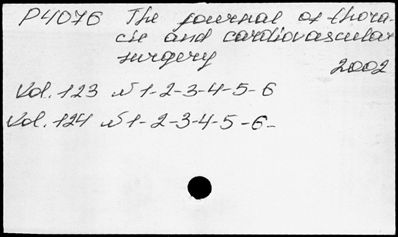 P4076 The journal of thora-
cic and cardiovascular
surgery
2002
Vol. 123 № 1-2-3-4-5-6
Vol. 124 № 1-2-3-4-5-6-